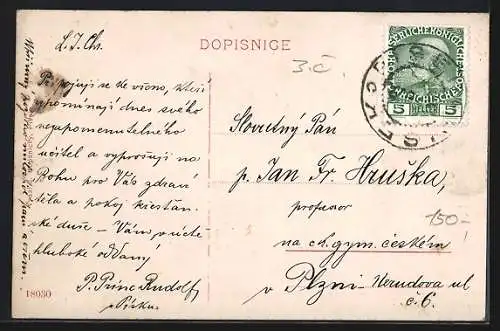 DOPISNICE
L. J. Ch.
Připojuji se ke všem, kteří
vzpomínají dnes svého
nezapomenutelného
učitel a vyprošuji na
Bohu pro Vás zdraví
těla a pokoj křesťan
ské duše – Vám v úctě
hluboké oddaný
P. Princ Rudolf
v Písku.
18030
3.č
KAISERLICHE KÖNIGLICHE
ÖSTERREICHISCHE
5 HELLER 5
Slovutný Pán
p. Jan Fr. Hruška,
professor
na c.k. gym. českém
v Plzni - Nerudova ul
č. 6.
150-